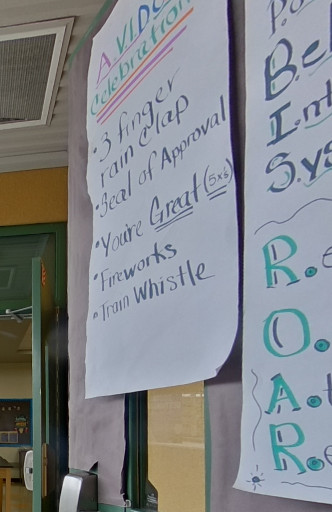 AVID
Celebration
• 3 finger
rain clap
• Seal of Approval
• You're Great (5x's)
• Fireworks
• Train Whistle
P.o
B.el
I.nt
S.ys
R.e
O.
A.t
R.e